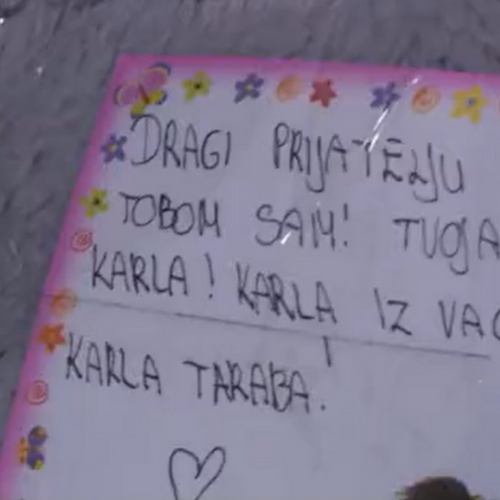 DRAGI PRIJATELJU
TOBOM SAM! TUGA
KARLA! KARLA IZ
KARLA TARABA.